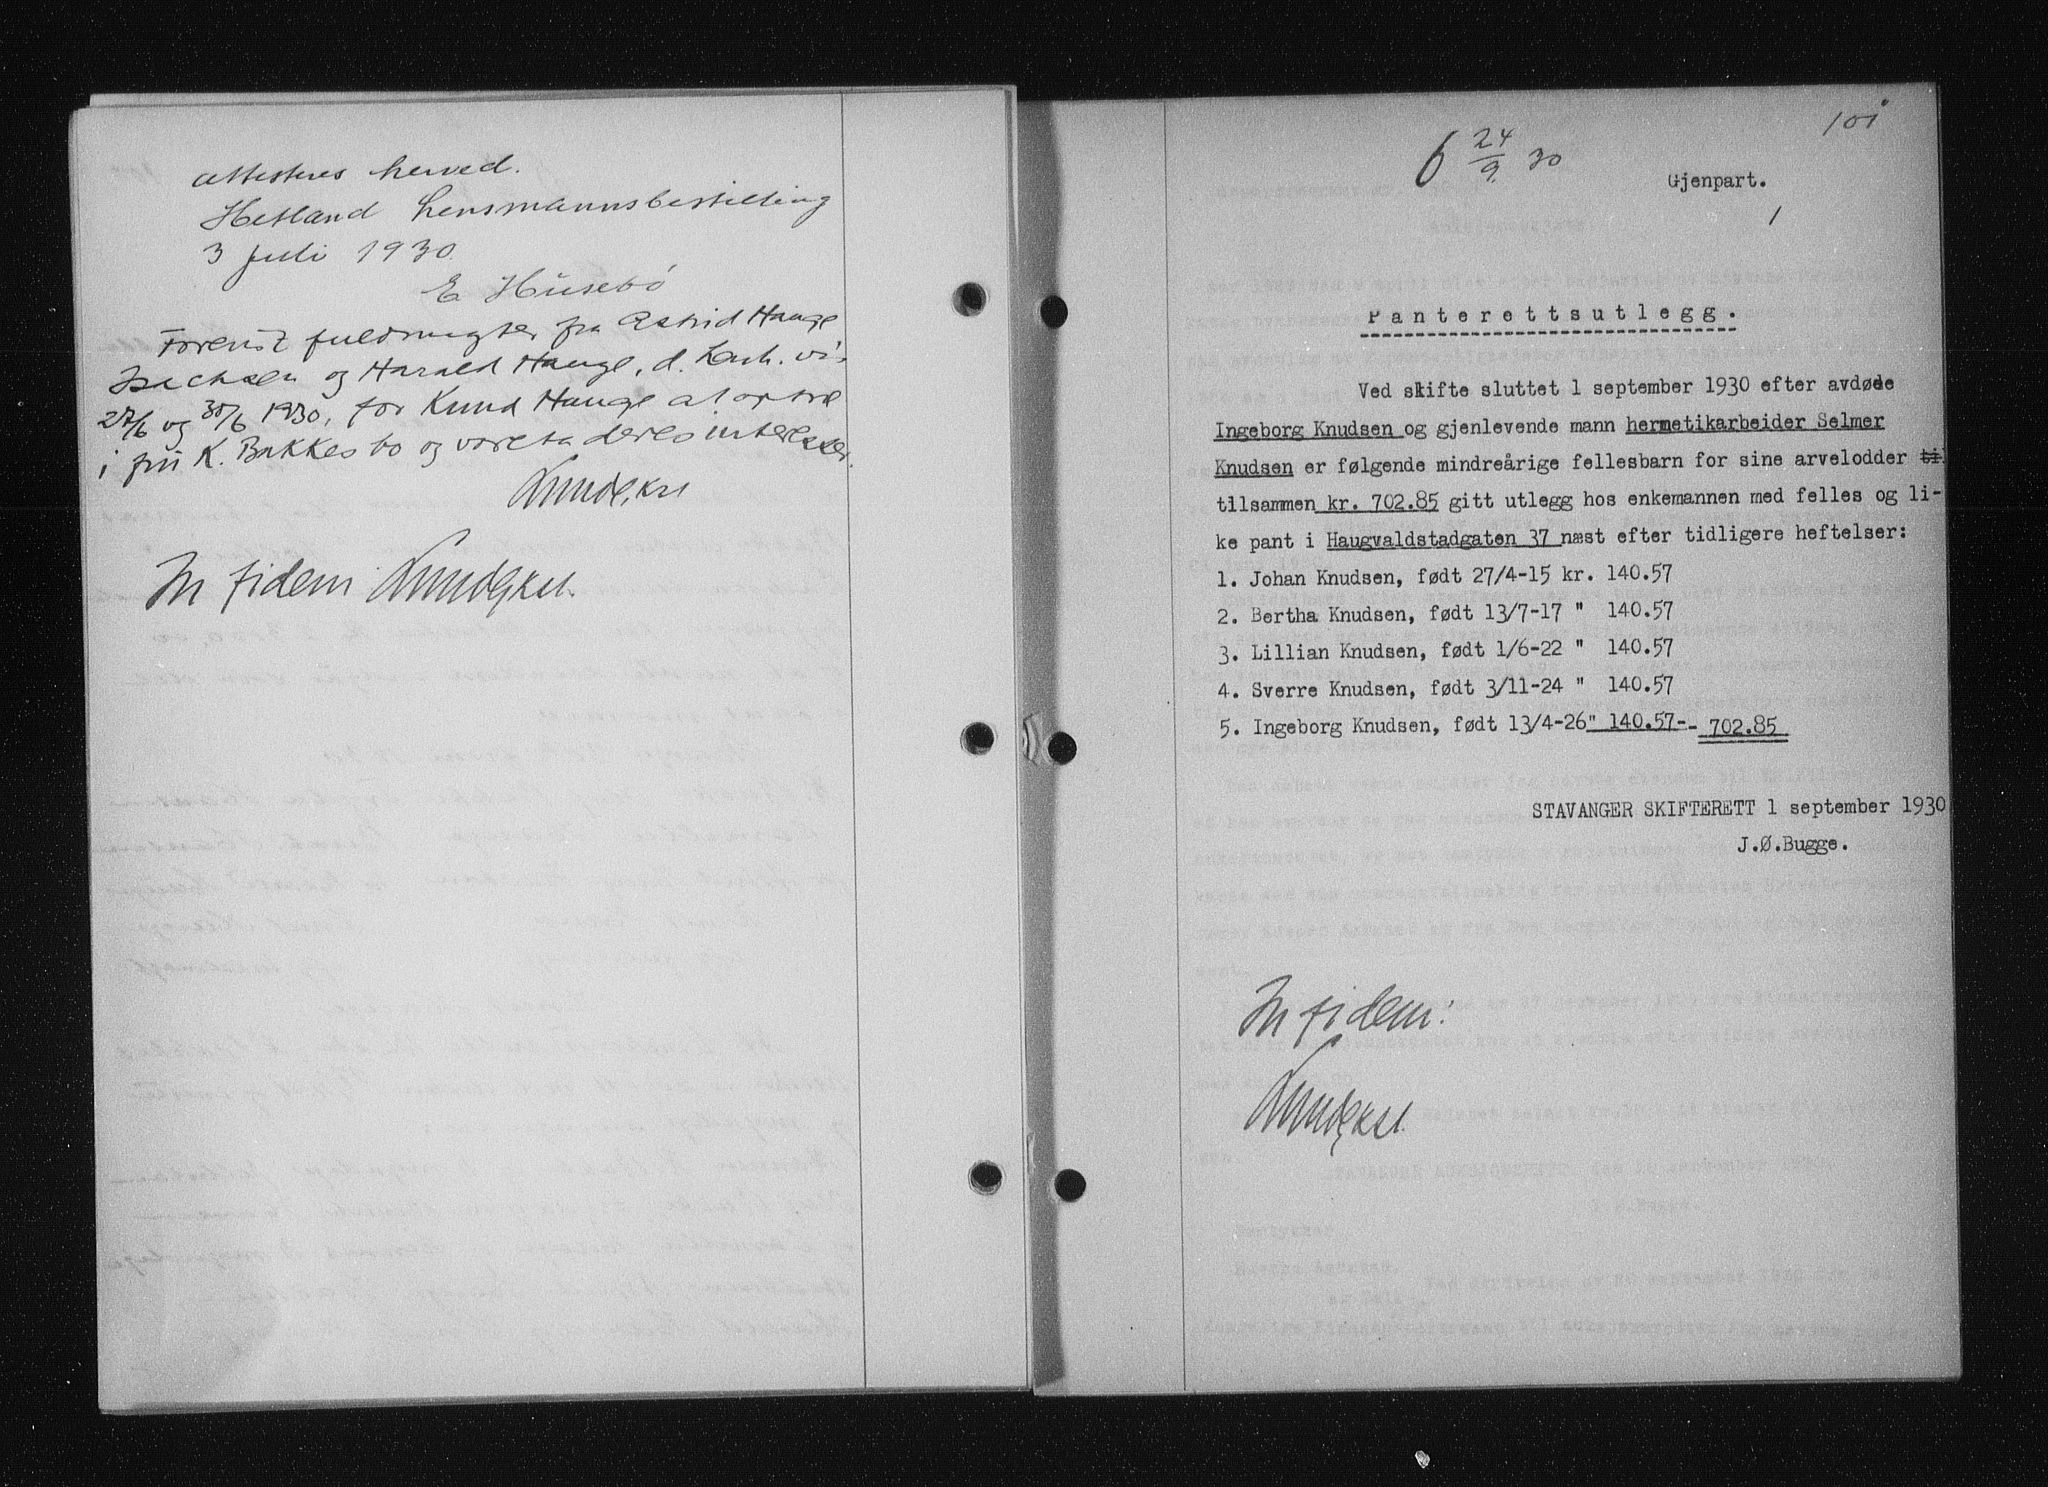 attesteres herved.
Hetland Lensmannsbestilling
3 Juli 1930.
E Húsebö
Forevist fuldmagter fra Astrid Hauge
Isachsen og Harald Hauge, d.
27/6 og 30/6 1930, for Knud Hauge at optre
i fru K. Bakkes bo og vareta deres interesser.
In fidem
101
6 24/9 30
Gjenpart.
1
Panterettsutlegg.
Ved skifte sluttet 1 september 1930 efter avdøde
Ingeborg Knudsen og gjenlevende mann hermetikarbeider Selmer
Knudsen er følgende mindreårige fellesbarn for sine arvelodder til
tilsammen kr. 702.85 gitt utlegg hos enkemannen med felles og li-
ke pant i Haugvaldstadgaten 37 næst efter tidligere heftelser:
1. Johan Knudsen, født 27/4-15 kr. 140.57
2. Bertha Knudsen, født 13/7-17 " 140.57
3. Lillian Knudsen, født 1/6-22 " 140.57
4. Sverre Knudsen, født 3/11-24 " 140.57
5. Ingeborg Knudsen, født 13/4-26" 140.57-- 702.85
STAVANGER SKIFTERETT 1 september 1930
J.Ø.Bugge.
In fidem: